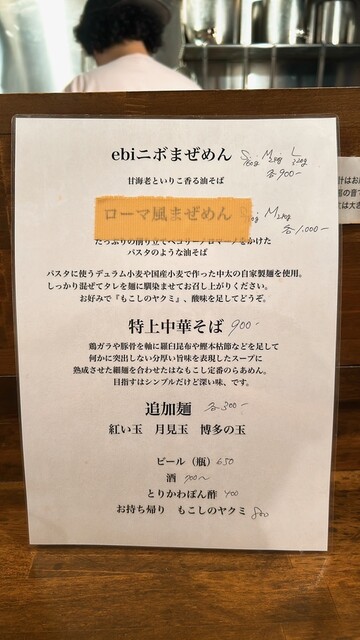 ebiニボまぜめん S 160g M 240g L 320g
各900-
甘海老といりこ香る油そば
ローマ風まぜめん M 240g
各1.000-
たっぷりの削り立てペコリーノロマーノをかけた
パスタのような油そば
パスタに使うデュラム小麦や国産小麦で作った中太の自家製麺を使用。
しっかり混ぜてタレを麺に馴染ませてお召し上がりください。
お好みで『もこしのヤクミ』、酸味を足してどうぞ。
特上中華そば 900-
鶏ガラや豚骨を軸に羅臼昆布や鰹本枯節などを足して
何かに突出しない分厚い旨味を表現したスープに
熟成させた細麺を合わせたはなもこし定番のらあめん。
目指すはシンプルだけど深い味、です。
追加麺 各300-
紅い玉 月見玉 博多の玉
ビール（瓶）650
酒 700〜
とりかわぽん酢 400
お持ち帰り もこしのヤクミ 800